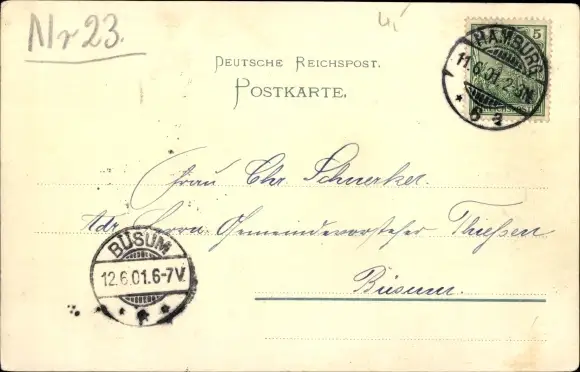 Nr 23.
DEUTSCHE REICHSPOST.
POSTKARTE.
5
HAMBURG
11.6.01.2-3N
* 6 a
Frau Chr. Schnerker.
Adr Herrn Gemeindevorsteher Thießen
Büsum.
BÜSUM
12.6.01.6-7V.